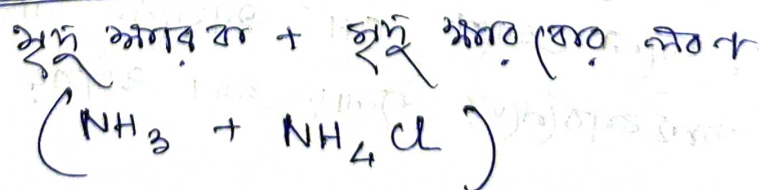 মৃদু ক্ষারক + মৃদু ক্ষারকের লবণ
(NH₃ + NH₄Cl)